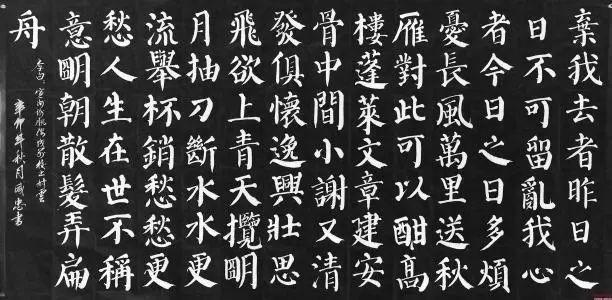 棄我去者昨日之
日不可留亂我心
者今日之日多煩
憂長風萬里送秋
雁對此可以酣高
樓蓬萊文章建安
骨中間小謝又清
發俱懷逸興壯思
飛欲上青天攬明
月抽刀斷水水更
流舉杯銷愁愁更
愁人生在世不稱
意明朝散髮弄扁
舟
李白
辛卯年秋月